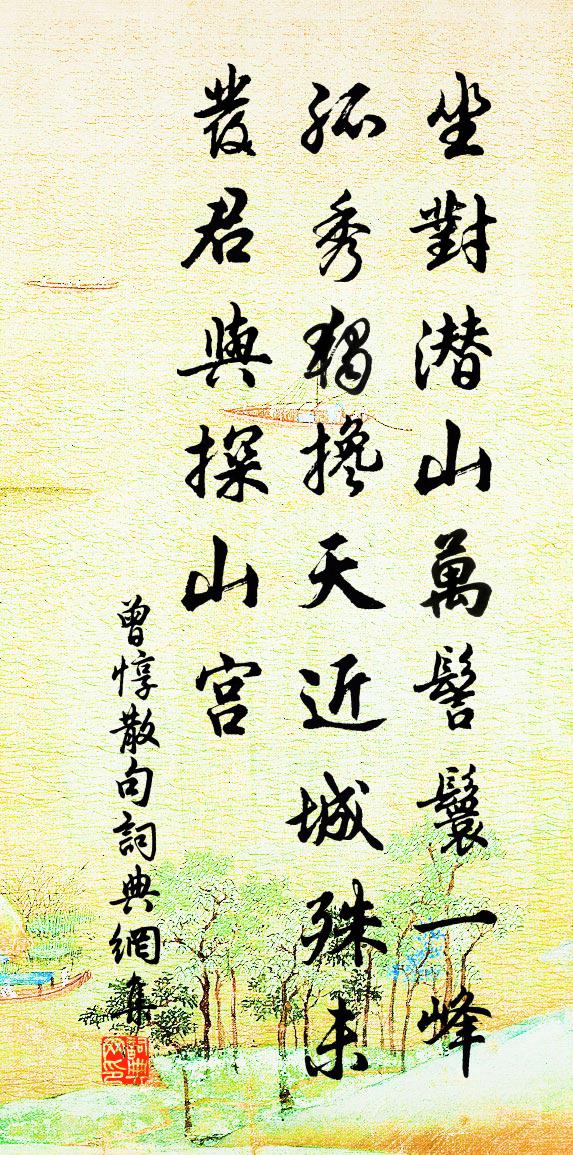 坐對潜山萬髻鬟一峰
孤秀獨攙天近城殊未
發君與探山宫
曾惇散句詞典網集